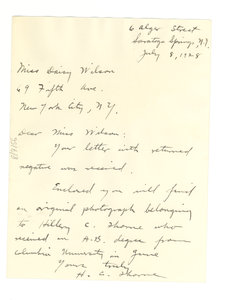 6 Alger Street
Saratoga Springs, N.Y.
July 8, 1928
Miss Daisy Wilson
69 Fifth Ave.
New York City, N.Y.
Dear Miss Wilson:
Your letter with returned
negative was received.
Enclosed you will find
an original photograph belonging
to Hillery C. Thorne who
received an A.B. degree from
Columbia University in June
Yours truly
H. C. Thorne